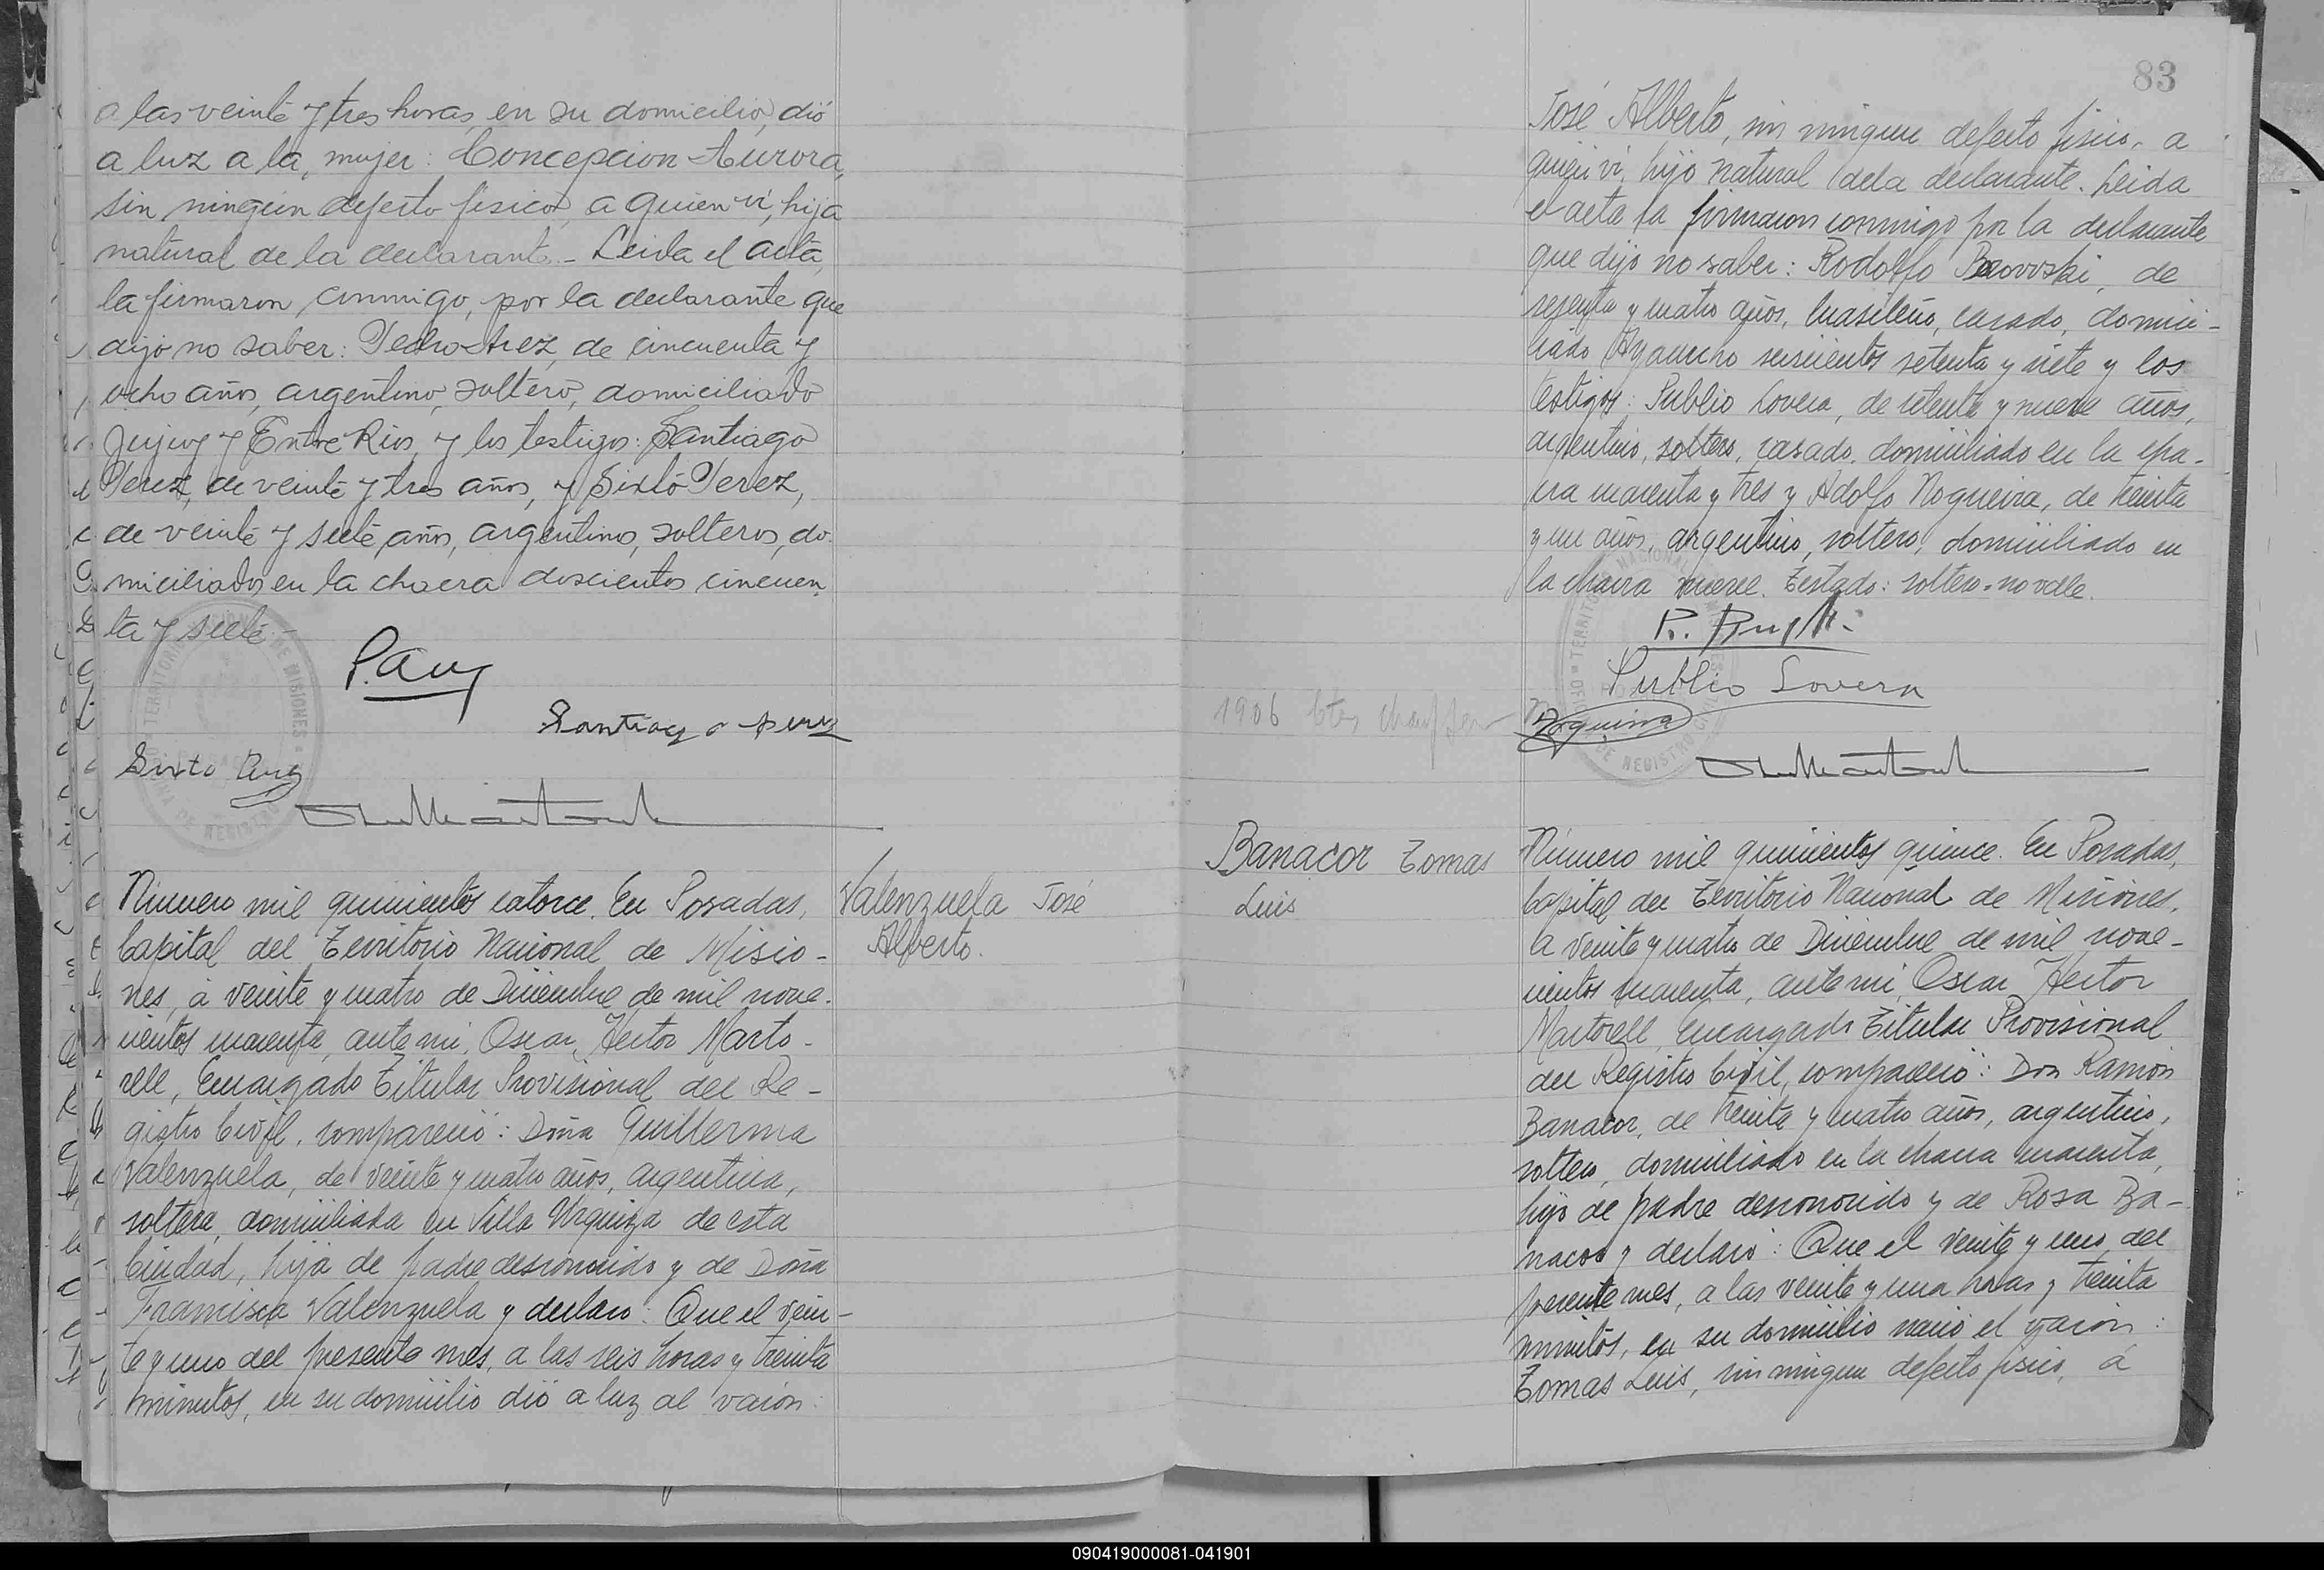 a las veinte y tres horas, en su domicilio, dió
a luz a la, mujer: Concepcion Aurora,
sin ningun defecto fisico, a quien ví, hija
natural de la declarante - Leida el acta,
la firmaron conmigo, por la declarante que
dijo no saber: Pedro de cincuenta y
ocho años, argentino, soltero, domiciliado
Jujuy y Entre Rios, y los testigos: Santiago
Perez, de veinte y tres años, y Sixto Perez,
de veinte y siete años, argentinos, solteros, do-
miciliados en la chacra doscientos cincuen,
ta y siete -
Santiago
Sixto
Número mil quinientos catorce. En Posadas,
Capital del Territorio Nacional de Misio-
nes, á veinte y cuatro de Diciembre de mil nove-
cientos cuarenta, ante mi, Oscar Hector Marto-
rell, Encargado Titular Provisional del Re-
gistro Civil, compareció: Doña Guillerma
Valenzuela, de veinte y cuatro años, argentina,
soltera, domiciliada en Villa Urquiza de esta
Ciudad, hija de padre desconocido y de Doña
Francisca Valenzuela y declaró: Que el vein-
te y uno del presente mes, a las seis horas y treinta
minutos, en su domicilio dió a luz al varon:
Valenzuela José
Alberto.
83
José Alberto, sin ningun defecto fisico, a
quien ví, hijo natural de la declarante. Leida
el acta la firmaron conmigo por la declarante
que dijo no saber: Rodolfo de
sesenta y cuatro años, brasileño, casado, domici-
liado Ayacucho seiscientos setenta y siete y los
testigos: Publio Lovera, de setenta y nueve años,
argentino, soltero, casado, domiciliado en la cha-
cra cuarenta y tres y Adolfo Nogueira, de treinta
y un años, argentino, soltero, domiciliado en
la chacra nueve. Testado: soltero-no vale.
Publio Lovera
1906
Nogueira
Banacor Tomas
Luis
Número mil quinientos quince. En Posadas,
Capital del Territorio Nacional de Misiones,
a veinte y cuatro de Diciembre de mil nove-
cientos cuarenta, ante mi, Oscar Hector
Martorell, Encargado Titular Provisional
del Registro Civil, compareció: Don Ramón
Banacor, de treinta y cuatro años, argentino,
soltero, domiciliado en la chacra cuarenta,
hijo de padre desconocido y de Rosa Ba-
nacor y declaró: Que el veinte y uno del
presente mes, a las veinte y una horas y treinta
minutos, en su domicilio nació el varon:
Tomas Luis, sin ningun defecto fisico, á
090419000081-041901